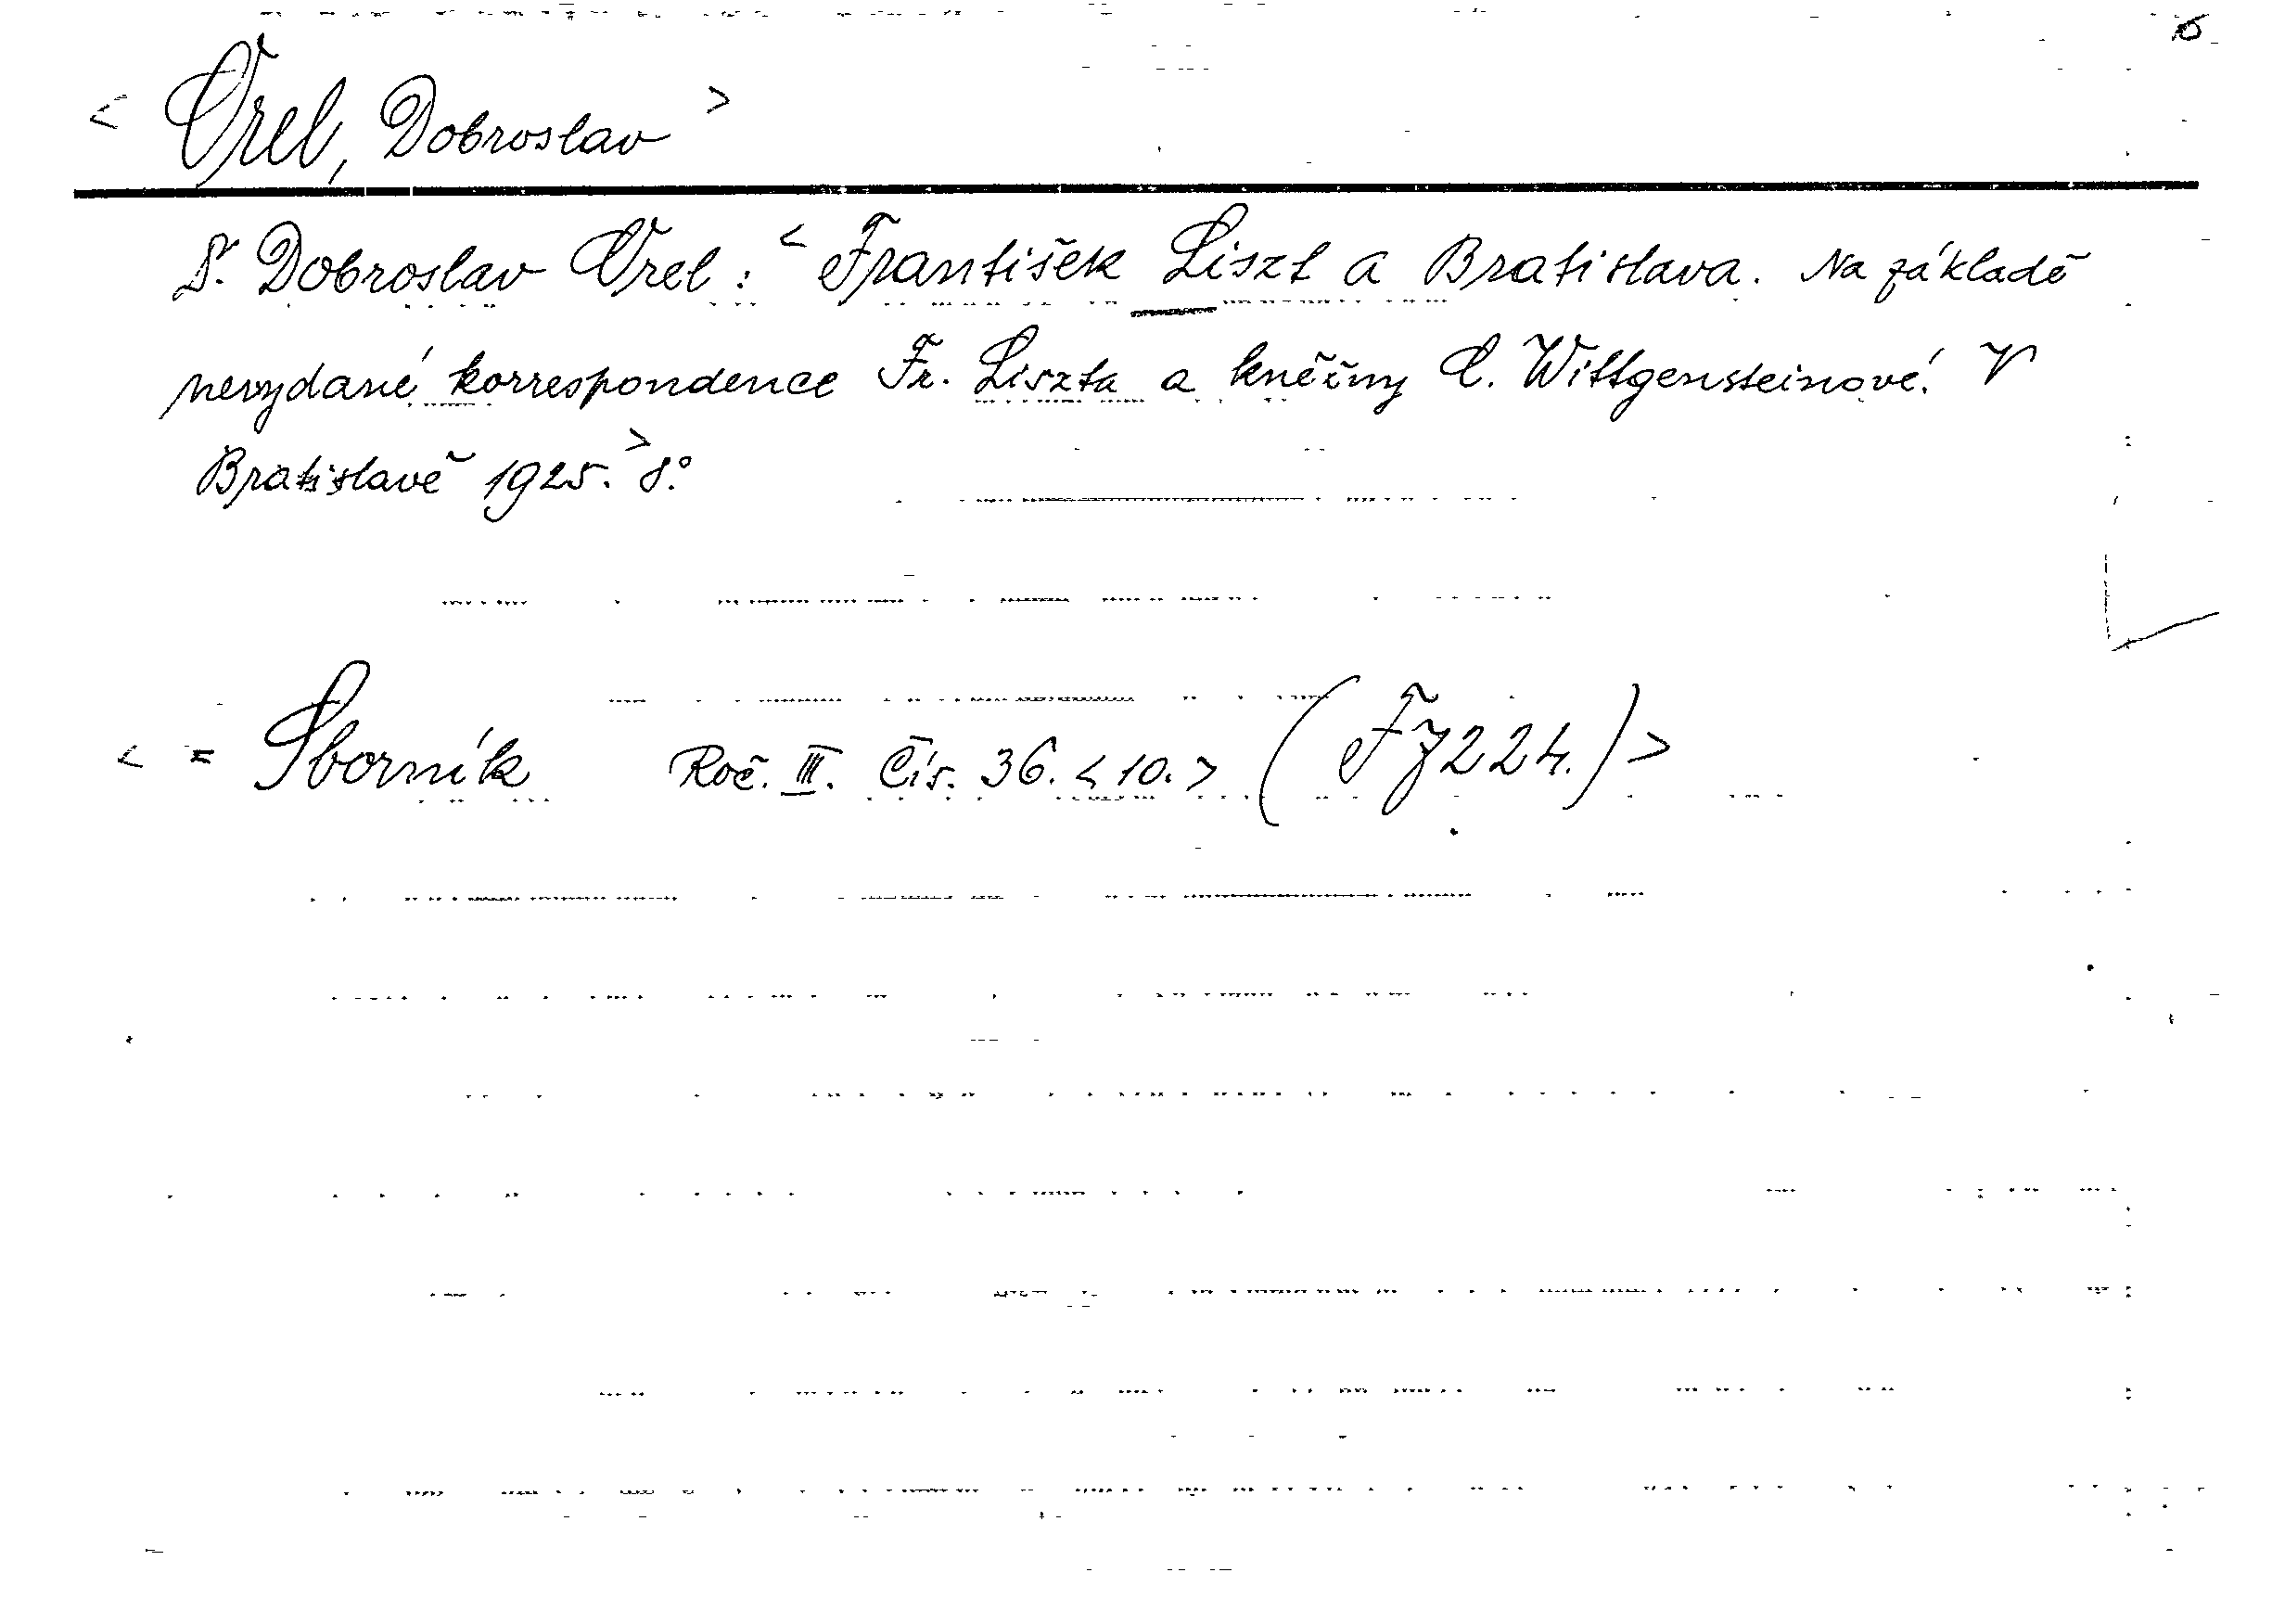 < Orel, Dobroslav >
Dr. Dobroslav Orel: < František Liszt a Bratislava. Na základě
nevydané korrespondence Fr. Liszta a kněžny C. Wittgensteinové. V
Bratislavě 1925. > 8°.
< = Sborník Roč. III. Čís. 36. < 10. > (F J 224.) >